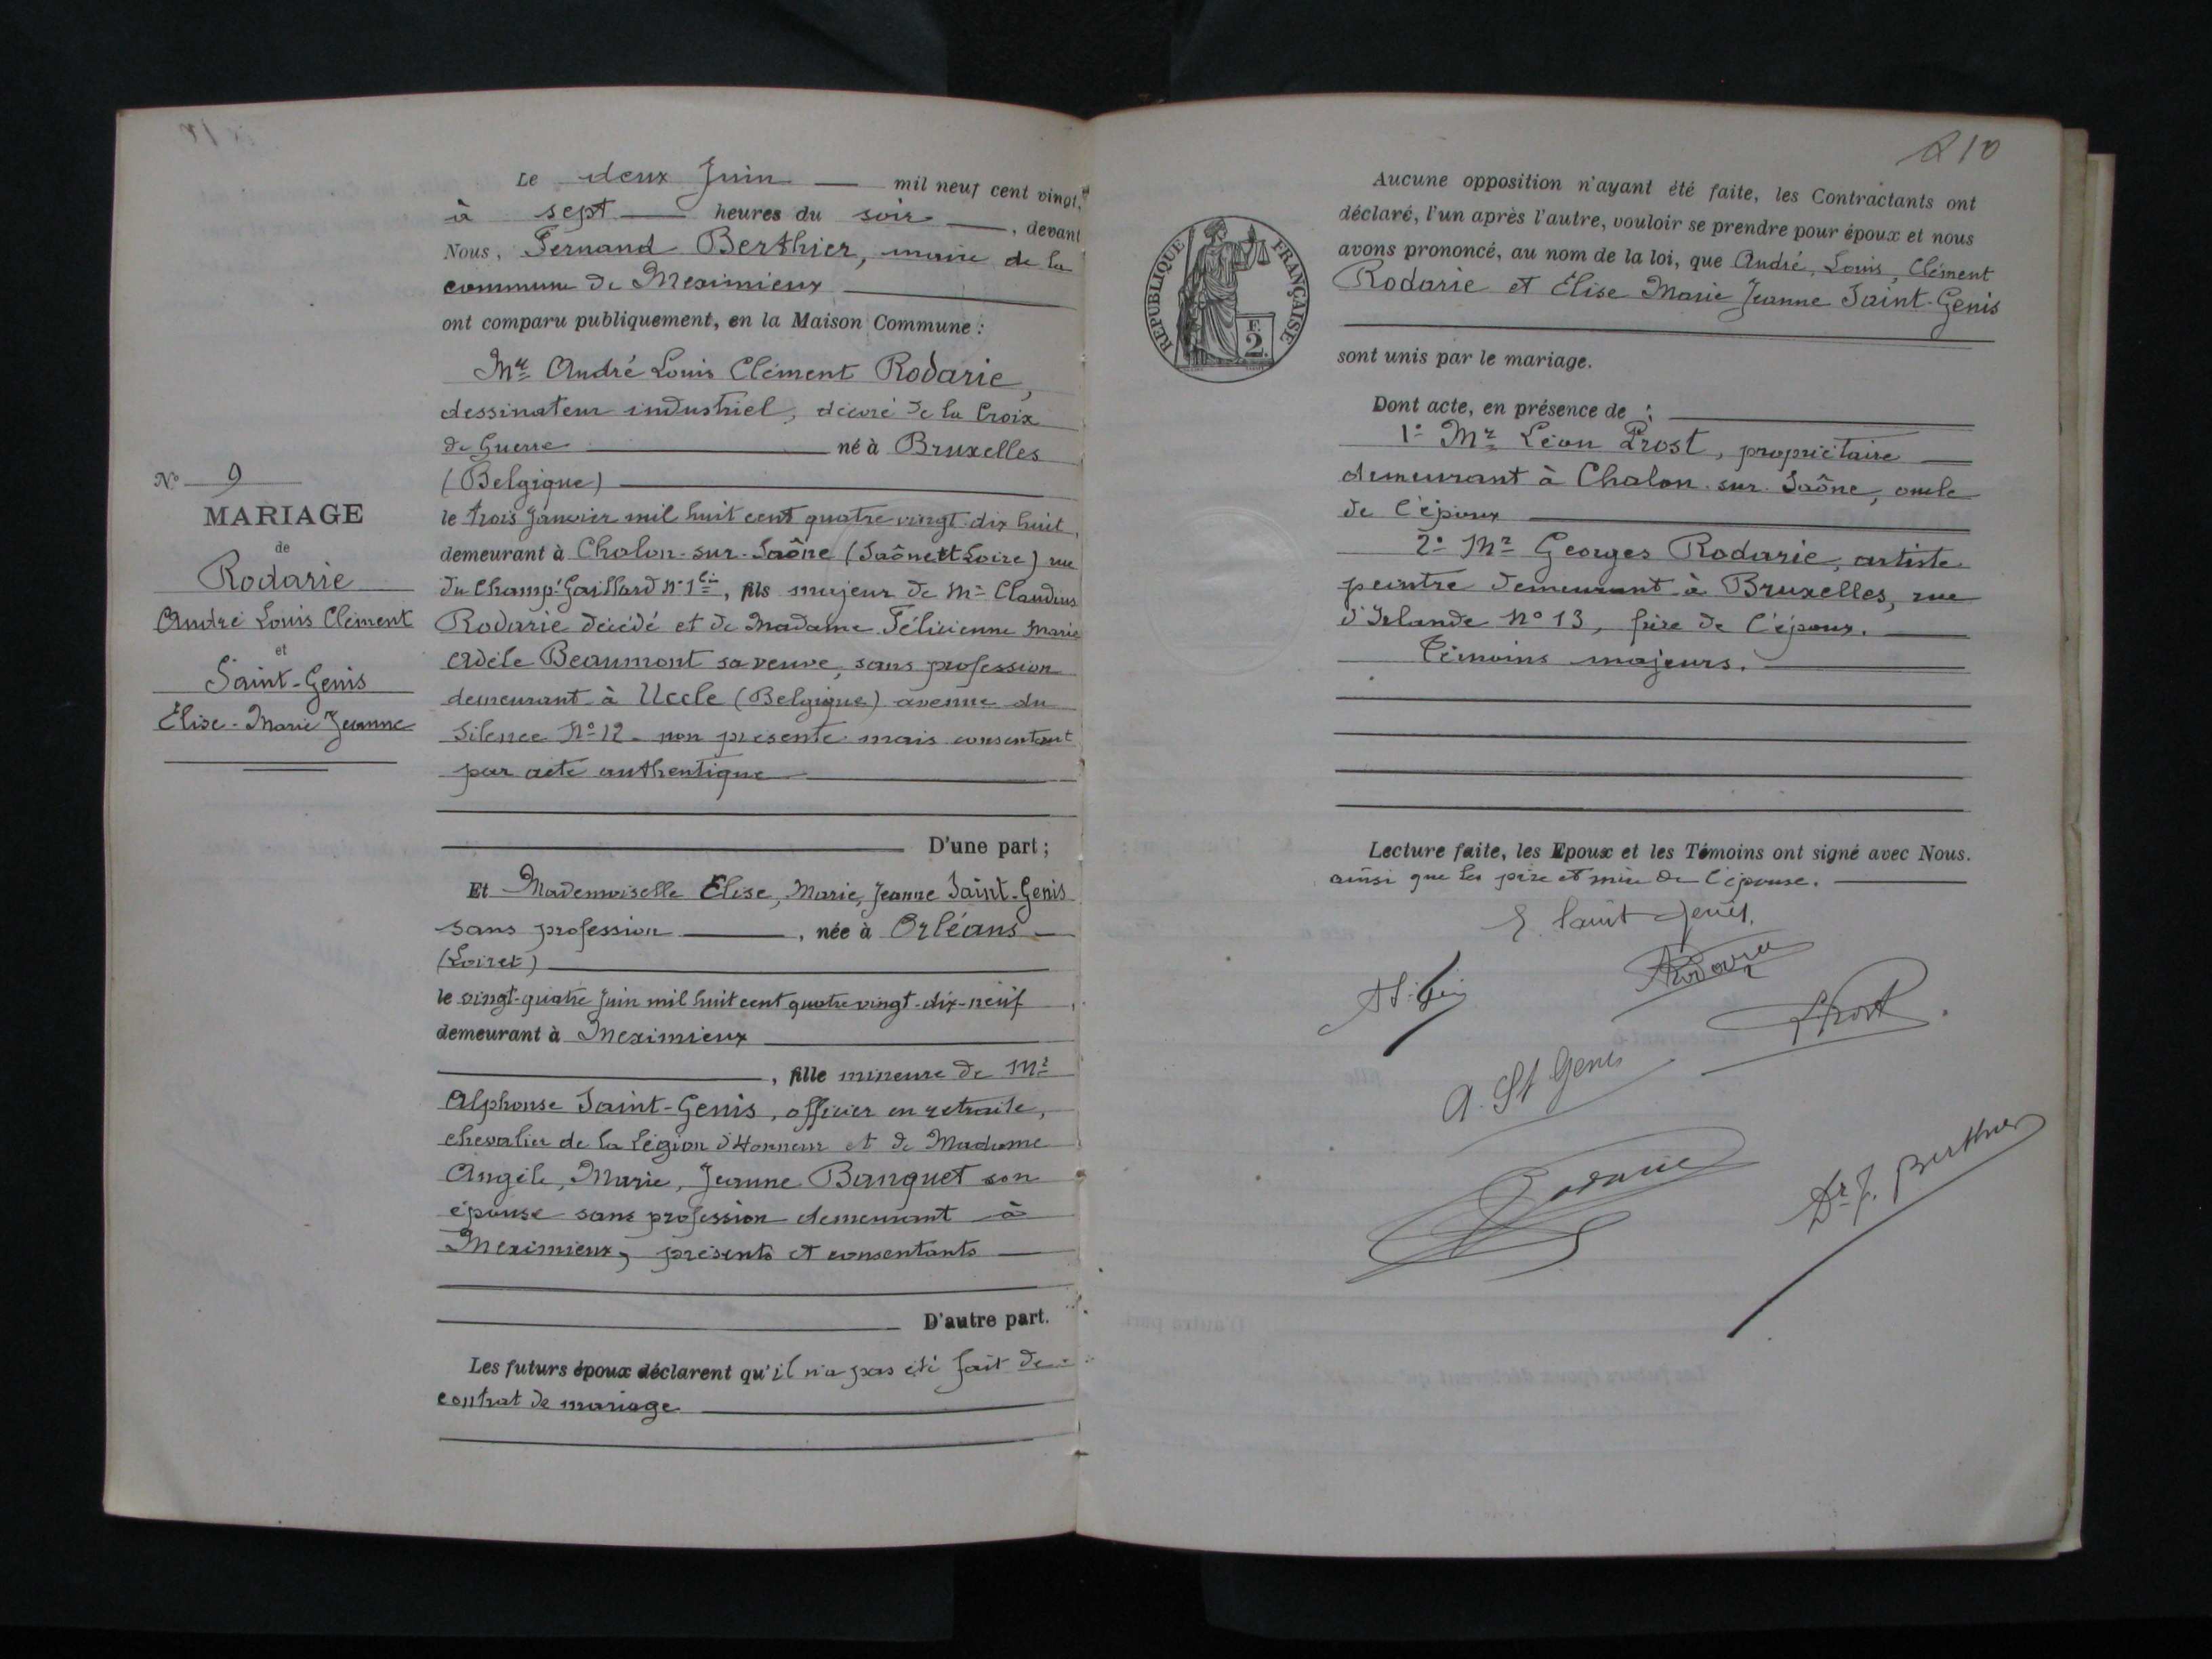 Le deux Juin mil neuf cent vingt,
à sept heures du soir, devant
Nous, Fernand Berthier, maire de la
commune de Meximieux
ont comparu publiquement, en la Maison Commune :
Mr André Louis Clément Rodarie,
dessinateur industriel, décoré de la Croix
de Guerre né à Bruxelles
(Belgique)
le trois Janvier mil huit cent quatre vingt-dix huit,
demeurant à Chalon-sur-Saône (Saône et Loire) rue
du Champ-Gaillard n° 1, fils majeur de Mr Claudius
Rodarie décédé et de Madame Félicienne Marie
Adèle Beaumont sa veuve, sans profession
demeurant à Uccle (Belgique) avenue du
Silence N° 12 - non présente mais consentant
par acte authentique
D'une part ;
Et Mademoiselle Elise, Marie, Jeanne Saint-Genis
sans profession, née à Orléans
(Loiret)
le vingt-quatre Juin mil huit cent quatre vingt-dix-neuf
demeurant à Meximieux
, fille mineure de Mr
Alphonse Saint-Genis, officier en retraite,
chevalier de la Légion d'Honneur et de Madame
Angèle, Marie, Jeanne Banquet son
épouse sans profession demeurant à
Meximieux, présents et consentants
D'autre part.
Les futurs époux déclarent qu'il n'a pas été fait de
contrat de mariage
N° 9
MARIAGE
de
Rodarie
André Louis Clément
et
Saint-Genis
Élise-Marie Jeanne
210
RÉPUBLIQUE FRANÇAISE
F.
2.
Aucune opposition n'ayant été faite, les Contractants ont
déclaré, l'un après l'autre, vouloir se prendre pour époux et nous
avons prononcé, au nom de la loi, que André, Louis, Clément
Rodarie et Élise Marie Jeanne Saint-Genis
sont unis par le mariage.
Dont acte, en présence de :
1° Mr Léon Prost, propriétaire
demeurant à Chalon-sur-Saône, oncle
de l'époux
2° Mr Georges Rodarie, artiste
peintre demeurant à Bruxelles, rue
d'Irlande n° 13, frère de l'époux.
Témoins majeurs.
Lecture faite, les Epoux et les Témoins ont signé avec Nous.
ainsi que les père et mère de l'épouse.
E. Saint Genis.
Rodarie
LProst
A. St Genis
Rodarie
Dr F. Berthier